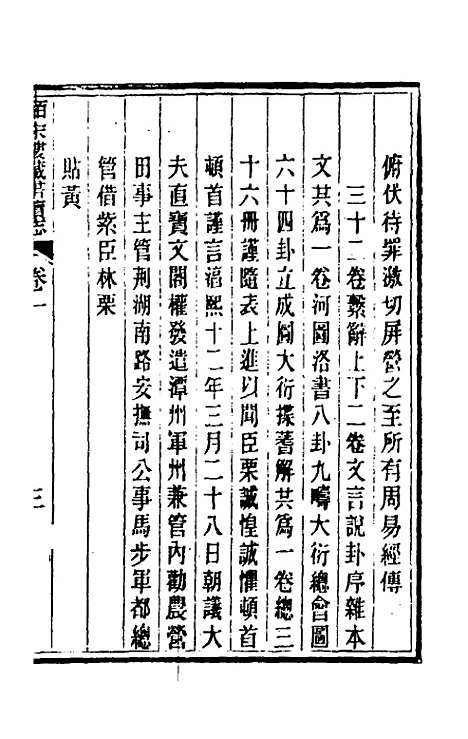 俯伏待罪激切屏營之至所有周易經傳
三十二卷繫辭上下二卷文言說卦序雜本
文共爲一卷河圖洛書八卦九疇大衍總會圖
六十四卦立成圖大衍揲蓍解共爲一卷總三
十六冊謹隨表上進以聞臣栗誠惶誠懼頓首
頓首謹言淳熙十二年三月二十八日朝議大
夫直寶文閣權發遣潭州軍州兼管內勸農營
田事主管荆湖南路安撫司公事馬步軍都總
管借紫臣林栗
貼黃
皕宋樓藏書續志 卷一 三